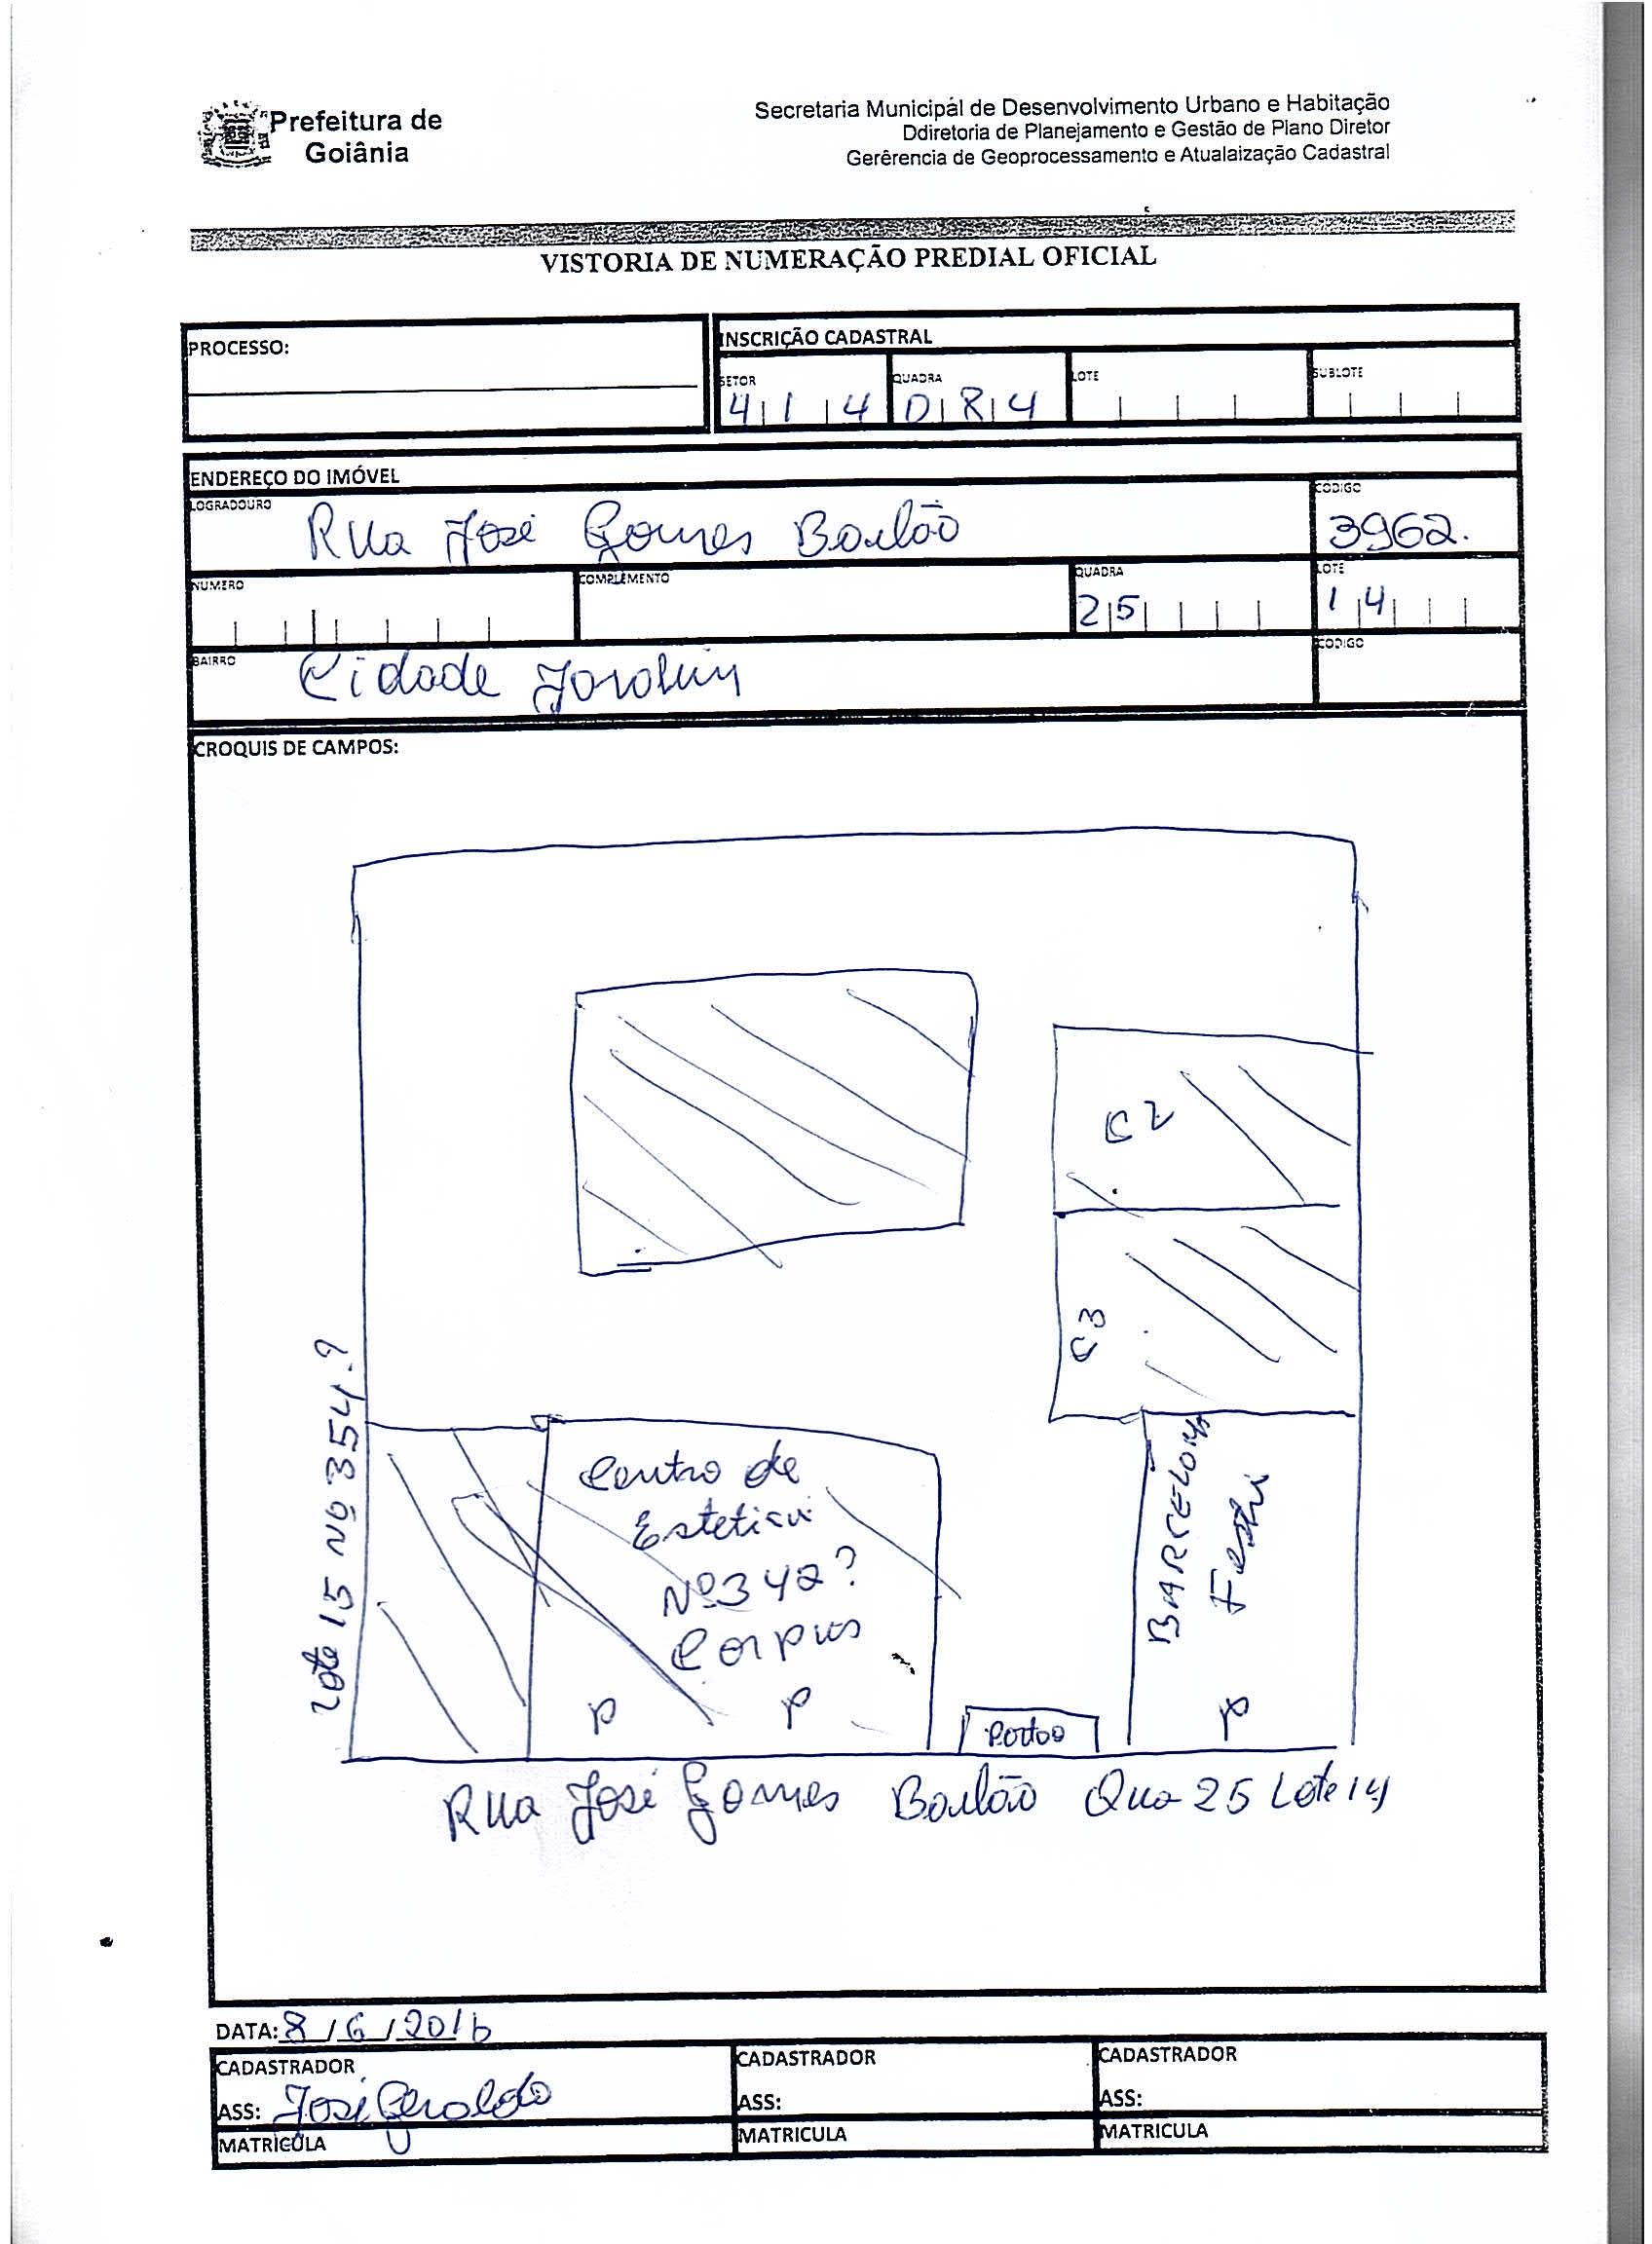 Prefeitura de
Goiânia
Secretaria Municipál de Desenvolvimento Urbano e Habitação
Ddiretoria de Planejamento e Gestão de Plano Diretor
Gerêrencia de Geoprocessamento e Atualaização Cadastral
VISTORIA DE NUMERAÇÃO PREDIAL OFICIAL
PROCESSO:
INSCRIÇÃO CADASTRAL
SETOR QUADRA LOTE SUBLOTE
4 1 4 0 8 4
ENDEREÇO DO IMÓVEL
LOGRADOURO CODIGO
Rua José Gomes Bailão 3962.
NUMERO COMPLEMENTO QUADRA LOTE
25 14
BAIRRO CODIGO
Cidade Jardim
CROQUIS DE CAMPOS:
C2
C3
Lote 15 Nº 354.?
Centro de
Estetica
Nº 342?
Corpus
P P
BARCELONA
P
Portão
Rua José Gomes Bailão Qua 25 Lote 14
DATA: 8 / 6 / 2016
CADASTRADOR CADASTRADOR CADASTRADOR
ASS: José Geraldo ASS: ASS:
MATRICULA MATRICULA MATRICULA